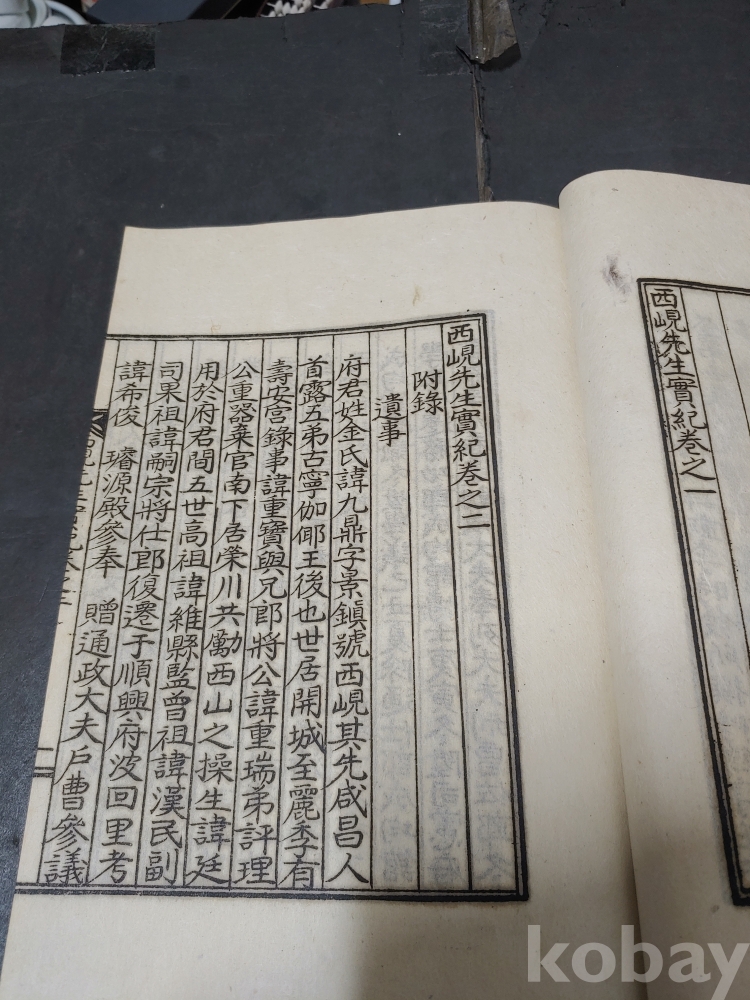 西峴先生實紀卷之一
西峴先生實紀卷之二
附錄
遺事
府君姓金氏諱九鼎字景鎭號西峴其先咸昌人
首露五弟古寧伽倻王後也世居開城至麗季有
壽安宮錄事諱重寶與兄郎將公諱重瑞弟評理
公重器棄官南下居榮川共勵西山之操生諱廷
用於府君間五世高祖諱維縣監曾祖諱漢民副
司果祖諱嗣宗將仕郎復遷于順興府波回里考
諱希俊 璿源殿參奉 贈通政大夫戶曹參議
kobay